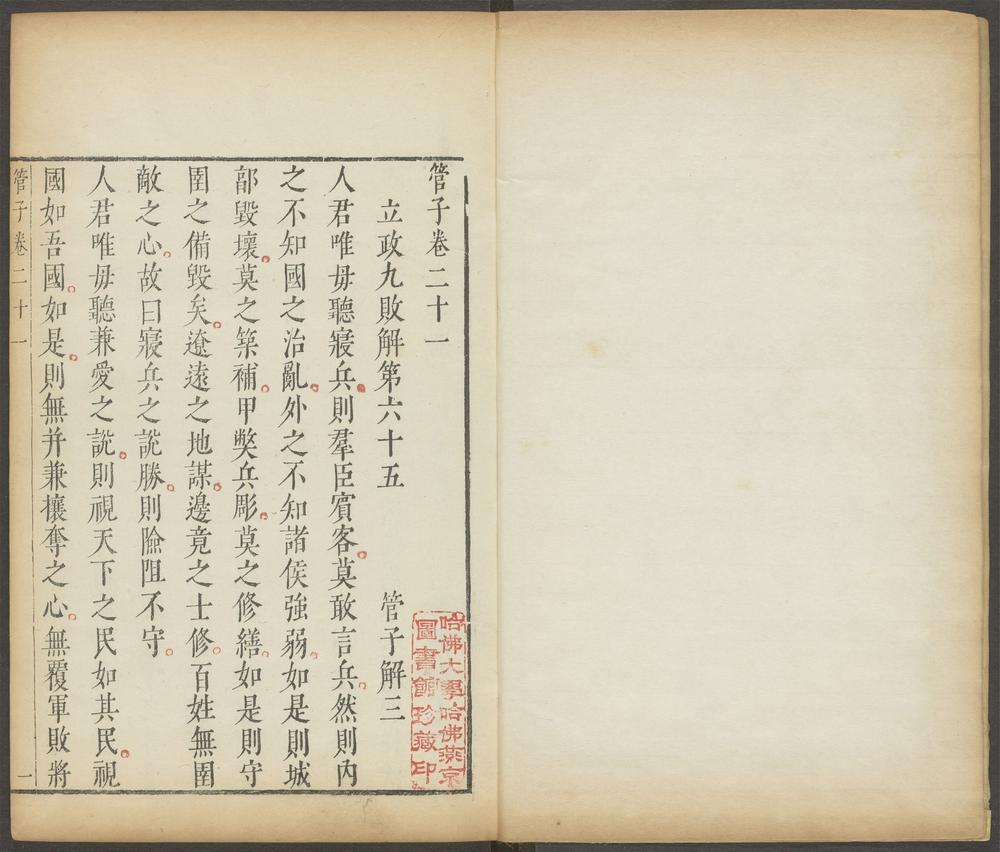 管子卷二十一
立政九敗解第六十五 管子解三
人君唯毋聽寢兵則羣臣賓客莫敢言兵然則內
之不知國之治亂外之不知諸侯強弱如是則城
郭毀壞莫之築補甲獘兵彫莫之修繕如是則守
圉之備毀矣遼遠之地謀邊竟之士修百姓無圉
敵之心故曰寢兵之說勝則險阻不守
人君唯毋聽兼愛之說則視天下之民如其民視
國如吾國如是則無并兼攘奪之心無覆軍敗將
管子卷二十一 一
哈佛大學哈佛燕京
圖書館珍藏印